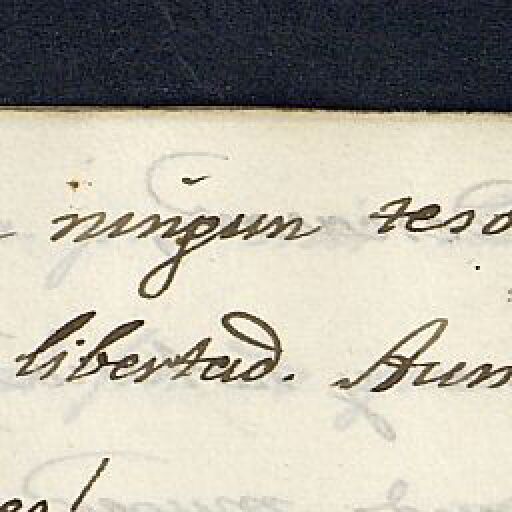 ningun teso
libertad. Aun
es!